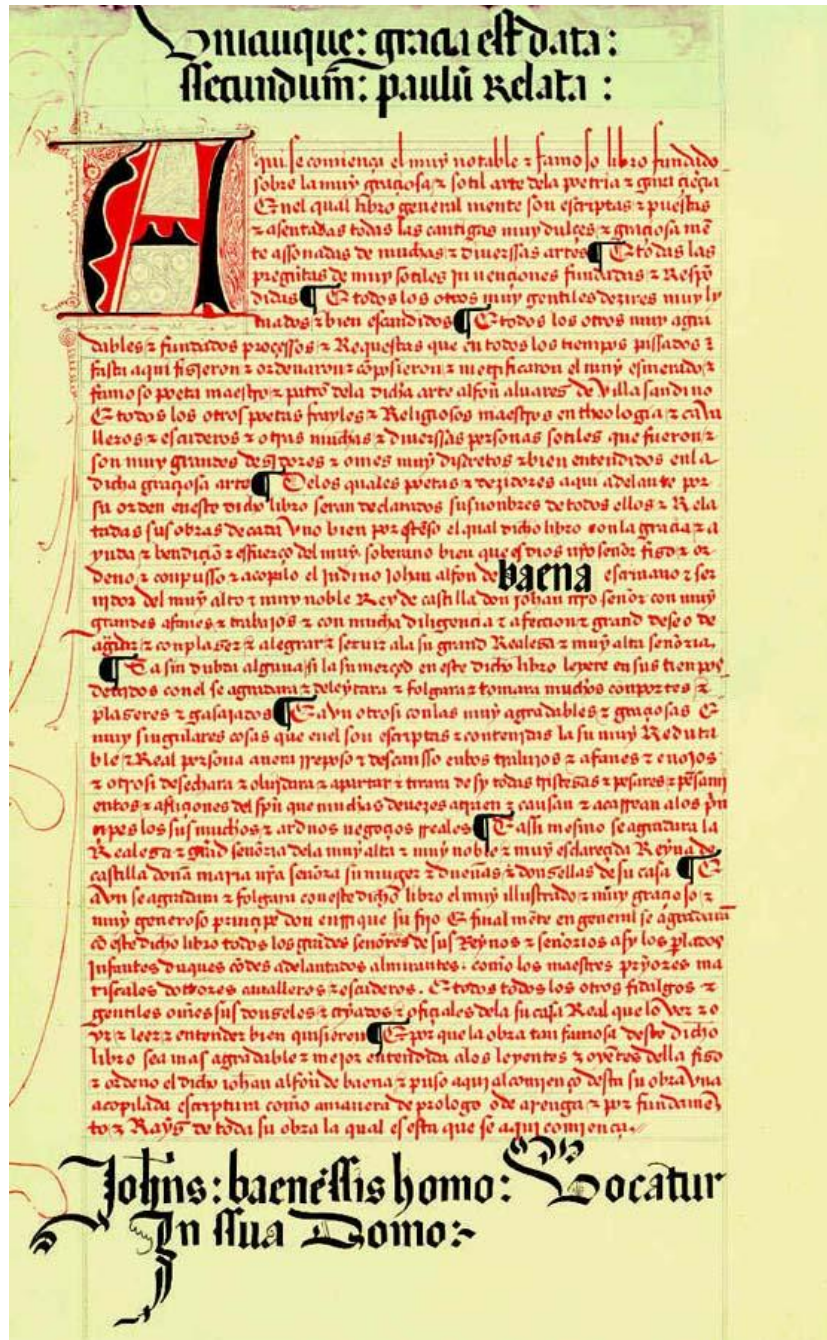 Vnicuique: gracia est data:
ssecundum: paulū Relata:
Aqui se comiença el muy notable ⁊ famoso libro fundado
sobre la muy graçiosa, ⁊ sotil arte dela poetria ⁊ gaya çiençia
En el qual libro general mente son escriptas ⁊ puestas
⁊ asentadas todas las cantigas muy dulçes ⁊ graçiosa mē
te assonadas de muchas ⁊ diuerssas artes ¶ E todas las
pregūtas de muy sotiles inuençiones fundadas ⁊ Respō
didas ¶ E todos los otros muy gentiles dezires muy ly
mados ⁊ bien escandidos ¶ E todos los otros muy agra
dables ⁊ fundados proçessos ⁊ Requestas que en todos los tiempos passados ⁊
fasta aqui fisieron ⁊ ordenaron ⁊ cōposieron ⁊ metrificaron el muy esmerado ⁊
famoso poeta maestro ⁊ patrō dela dicha arte alfoñ aluares de Villa sandino
E todos los otros poetas frayles ⁊ Religiosos maestros en theologia ⁊ caua
lleros ⁊ escuderos ⁊ otras muchas ⁊ diuerssas personas sotiles que fueron ⁊
son muy grandes desidores ⁊ omes muy discretos ⁊ bien entendidos en la
dicha graçiosa arte ¶ Delos quales poetas ⁊ dezidores aqui adelante por
su orden en este dicho libro seran declarados sus nonbres de todos ellos ⁊ Rela
tadas sus obras de cada vno bien por estēso el qual dicho libro con la graçia ⁊ a
yuda ⁊ bendiçiō ⁊ esfuerço del muy soberano bien que es dios ñro señor fiso ⁊ or
deno ⁊ conpusso ⁊ acopilo el Indino Iohan alfon de baena escriuano ⁊ ser
uidor del muy alto ⁊ muy noble Rey de castilla don iohan ñro señor con muy
grandes afanes ⁊ trabajos ⁊ con mucha diligençia ⁊ afecçion ⁊ grand deseo de
agradar ⁊ conplaser ⁊ alegrar ⁊ seruir ala su grand Realesa ⁊ muy alta señoria.
¶ Ca sin dubda alguna si la su merçed en este dicho libro leyere en sus tienpos
deuidos con el se agradara ⁊ deleytara ⁊ folgara ⁊ tomara muchos conportes ⁊
plaseres ⁊ gasajados ¶ E avn otrosi con las muy agradables ⁊ graçiosas E
muy singulares cosas que en el son escriptas ⁊ contenidas la su muy Reduta
ble ⁊ Real persona auera rreposo ⁊ descansso enlos trabajos ⁊ afanes ⁊ enojos
⁊ otrosi desechara ⁊ oluidara ⁊ apartar ⁊ tirara de sy todas tristesas ⁊ pesares ⁊ pēsami
entos ⁊ afliçiones del spū que muchas de vezes atraen ⁊ causan ⁊ acarrean alos prin
çipes los sus muchos ⁊ arduos negoçios rreales ¶ E assi mesmo se agradara la
Realesa ⁊ grād señoria dela muy alta ⁊ muy noble ⁊ muy esclareçida Reyna de
castilla doña maria ñra señora su muger ⁊ dueñas ⁊ donsellas de su casa ¶ E
avn se agradara ⁊ folgara con este dicho libro el muy illustrado ⁊ muy graçioso ⁊
muy generoso prinçipe don enrrique su fijo E final mēte en general se agradaran
cō este dicho libro todos los grādes señores de sus Reynos ⁊ señorios asy los plados
Infantes duques cōdes adelantados almirantes. como los maestres pryores ma
riscales dottores caualleros ⁊ escuderos. E todos todos los otros fidalgos ⁊
gentiles oms sus donseles ⁊ cryados ⁊ ofiçiales dela su casa Real que lo ver ⁊ o
yr ⁊ leer ⁊ entender bien quisieren ¶ E por que la obra tan famosa deste dicho
libro sea mas agradable ⁊ mejor entendida alos leyentes ⁊ oyētes della fiso
⁊ ordeno el dicho iohan alfoñ de baena ⁊ puso aqui al comienço desta su obra vna
acopilada escriptura como amanera de prologo o de arenga ⁊ por fundamen
to ⁊ Rays de toda su obra la qual es esta que se aqui comiença.
Johns: baenēssis homo: Vocatur
In ssua Domo:~